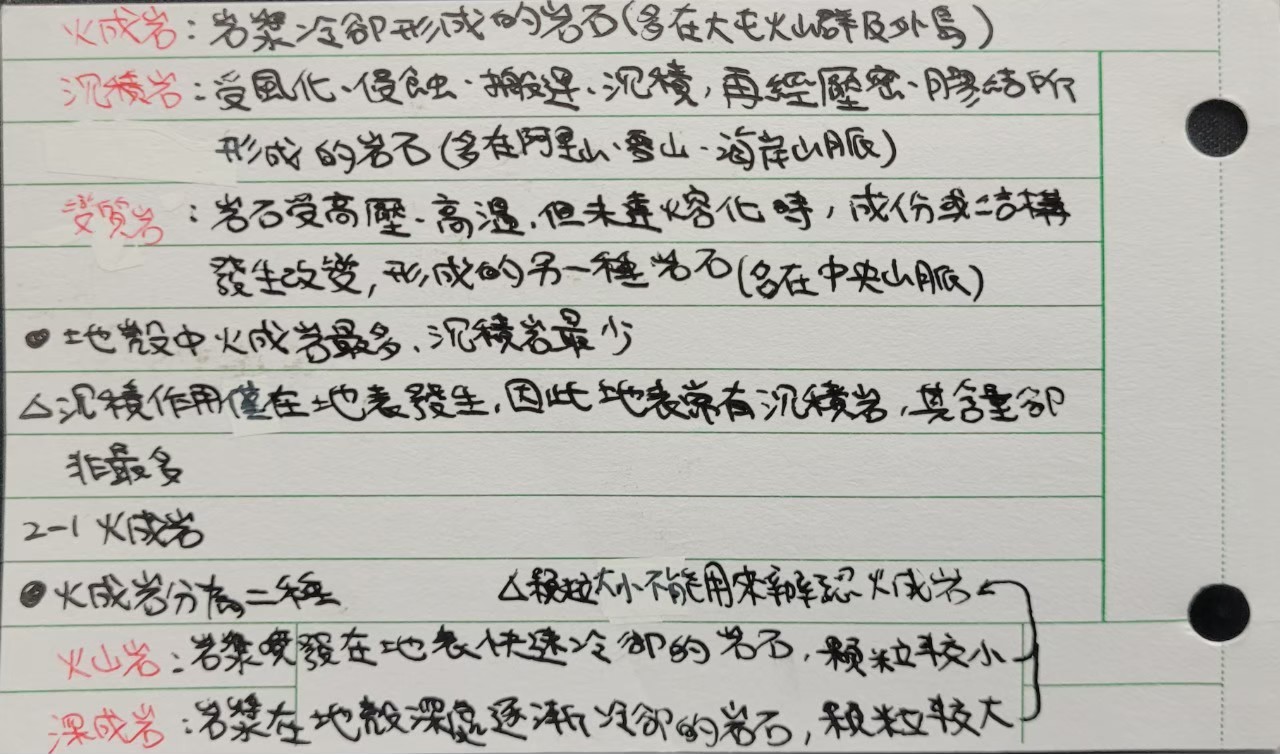 火成岩：岩漿冷卻形成的岩石(多在大屯火山群及外島)
沉積岩：受風化、侵蝕、搬運、沉積，再經壓密、膠結所
形成的岩石(多在阿里山、雪山、海岸山脈)
變質岩：岩石受高壓、高溫，但未達熔化時，成份或結構
發生改變，形成的另一種岩石(多在中央山脈)
● 地殼中火成岩最多、沉積岩最少
△沉積作用僅在地表發生，因此地表常有沉積岩，其含量卻
非最多
2-1 火成岩
● 火成岩分為二種 △顆粒大小不能用來辨認火成岩
火山岩：岩漿噴發在地表快速冷卻的岩石，顆粒較小
深成岩：岩漿在地殼深處逐漸冷卻的岩石，顆粒較大